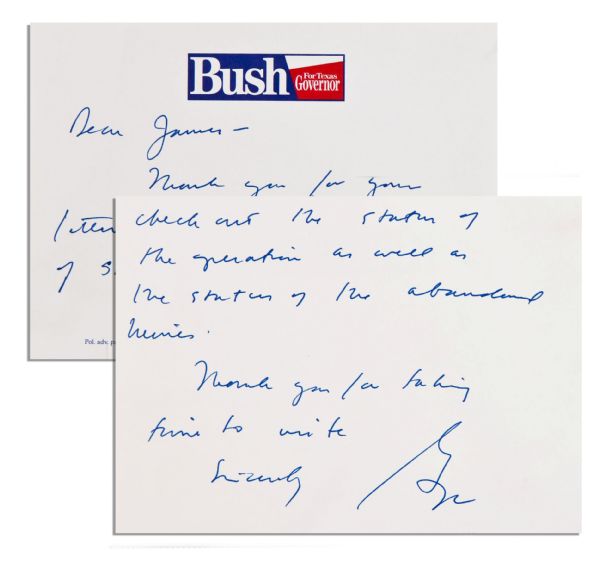 Bush
For Texas
Governor
Dear James –
Thank you for your
letter
of S
Pol. adv. p
check out the status of
the operation as well as
the status of the abandoned
Thank you for taking
time to write
Sincerely